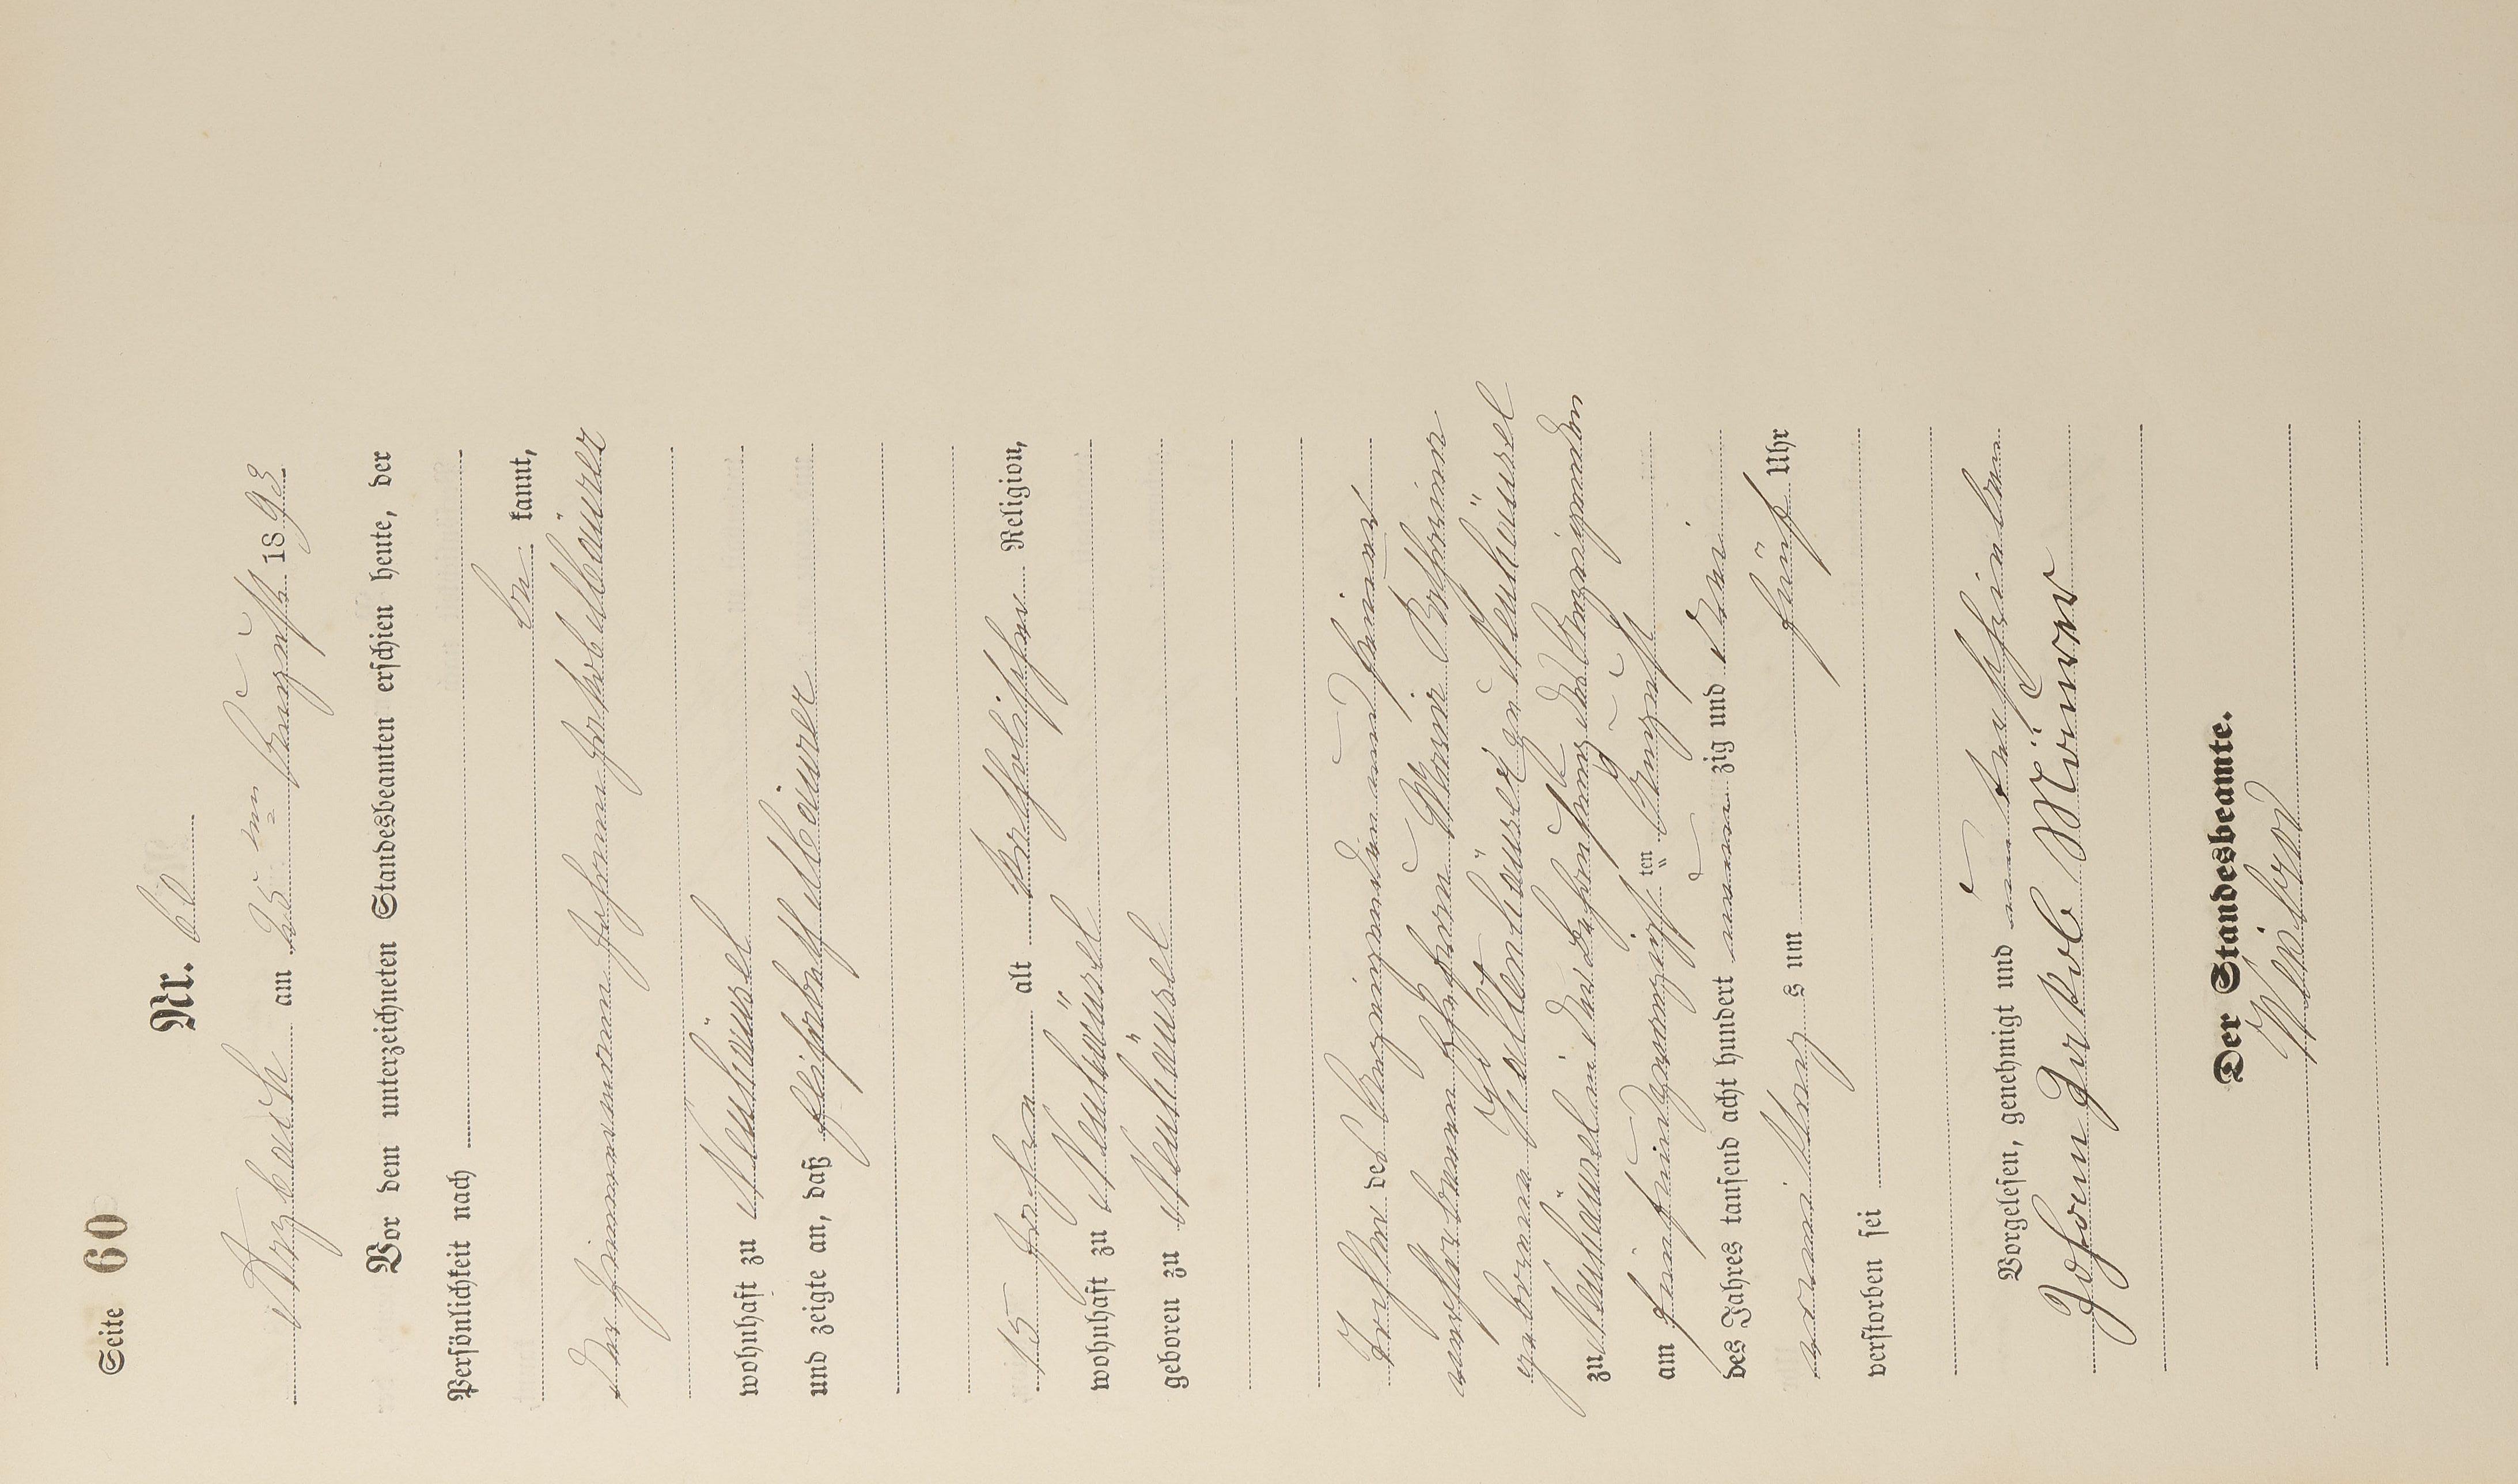 Seite 60
Nr. 60
Arzbach am 25ten August 1893
Vor dem unterzeichneten Standesbeamten erschien heute, der
Persönlichkeit nach
be kannt,
der Zimmermann Johann Jakob
wohnhaft zu Neuhäusel
und zeigte an, daß Elisabeth
15 Jahre alt katholischer Religion,
wohnhaft zu Neuhäusel
geboren zu Neuhäusel
Tochter des Anzeigenden und seiner
verstorbenen Ehefrau Maria Katharina
geborene zu Neuhäusel
zu Neuhäusel in des Anzeigenden
am fünfundzwanzigsten August
des Jahres tausend acht hundert neun zig und drei
Vormittags um fünf Uhr
verstorben sei
Vorgelesen, genehmigt und unterschrieben
Johann Jakob Mäurer
Der Standesbeamte.